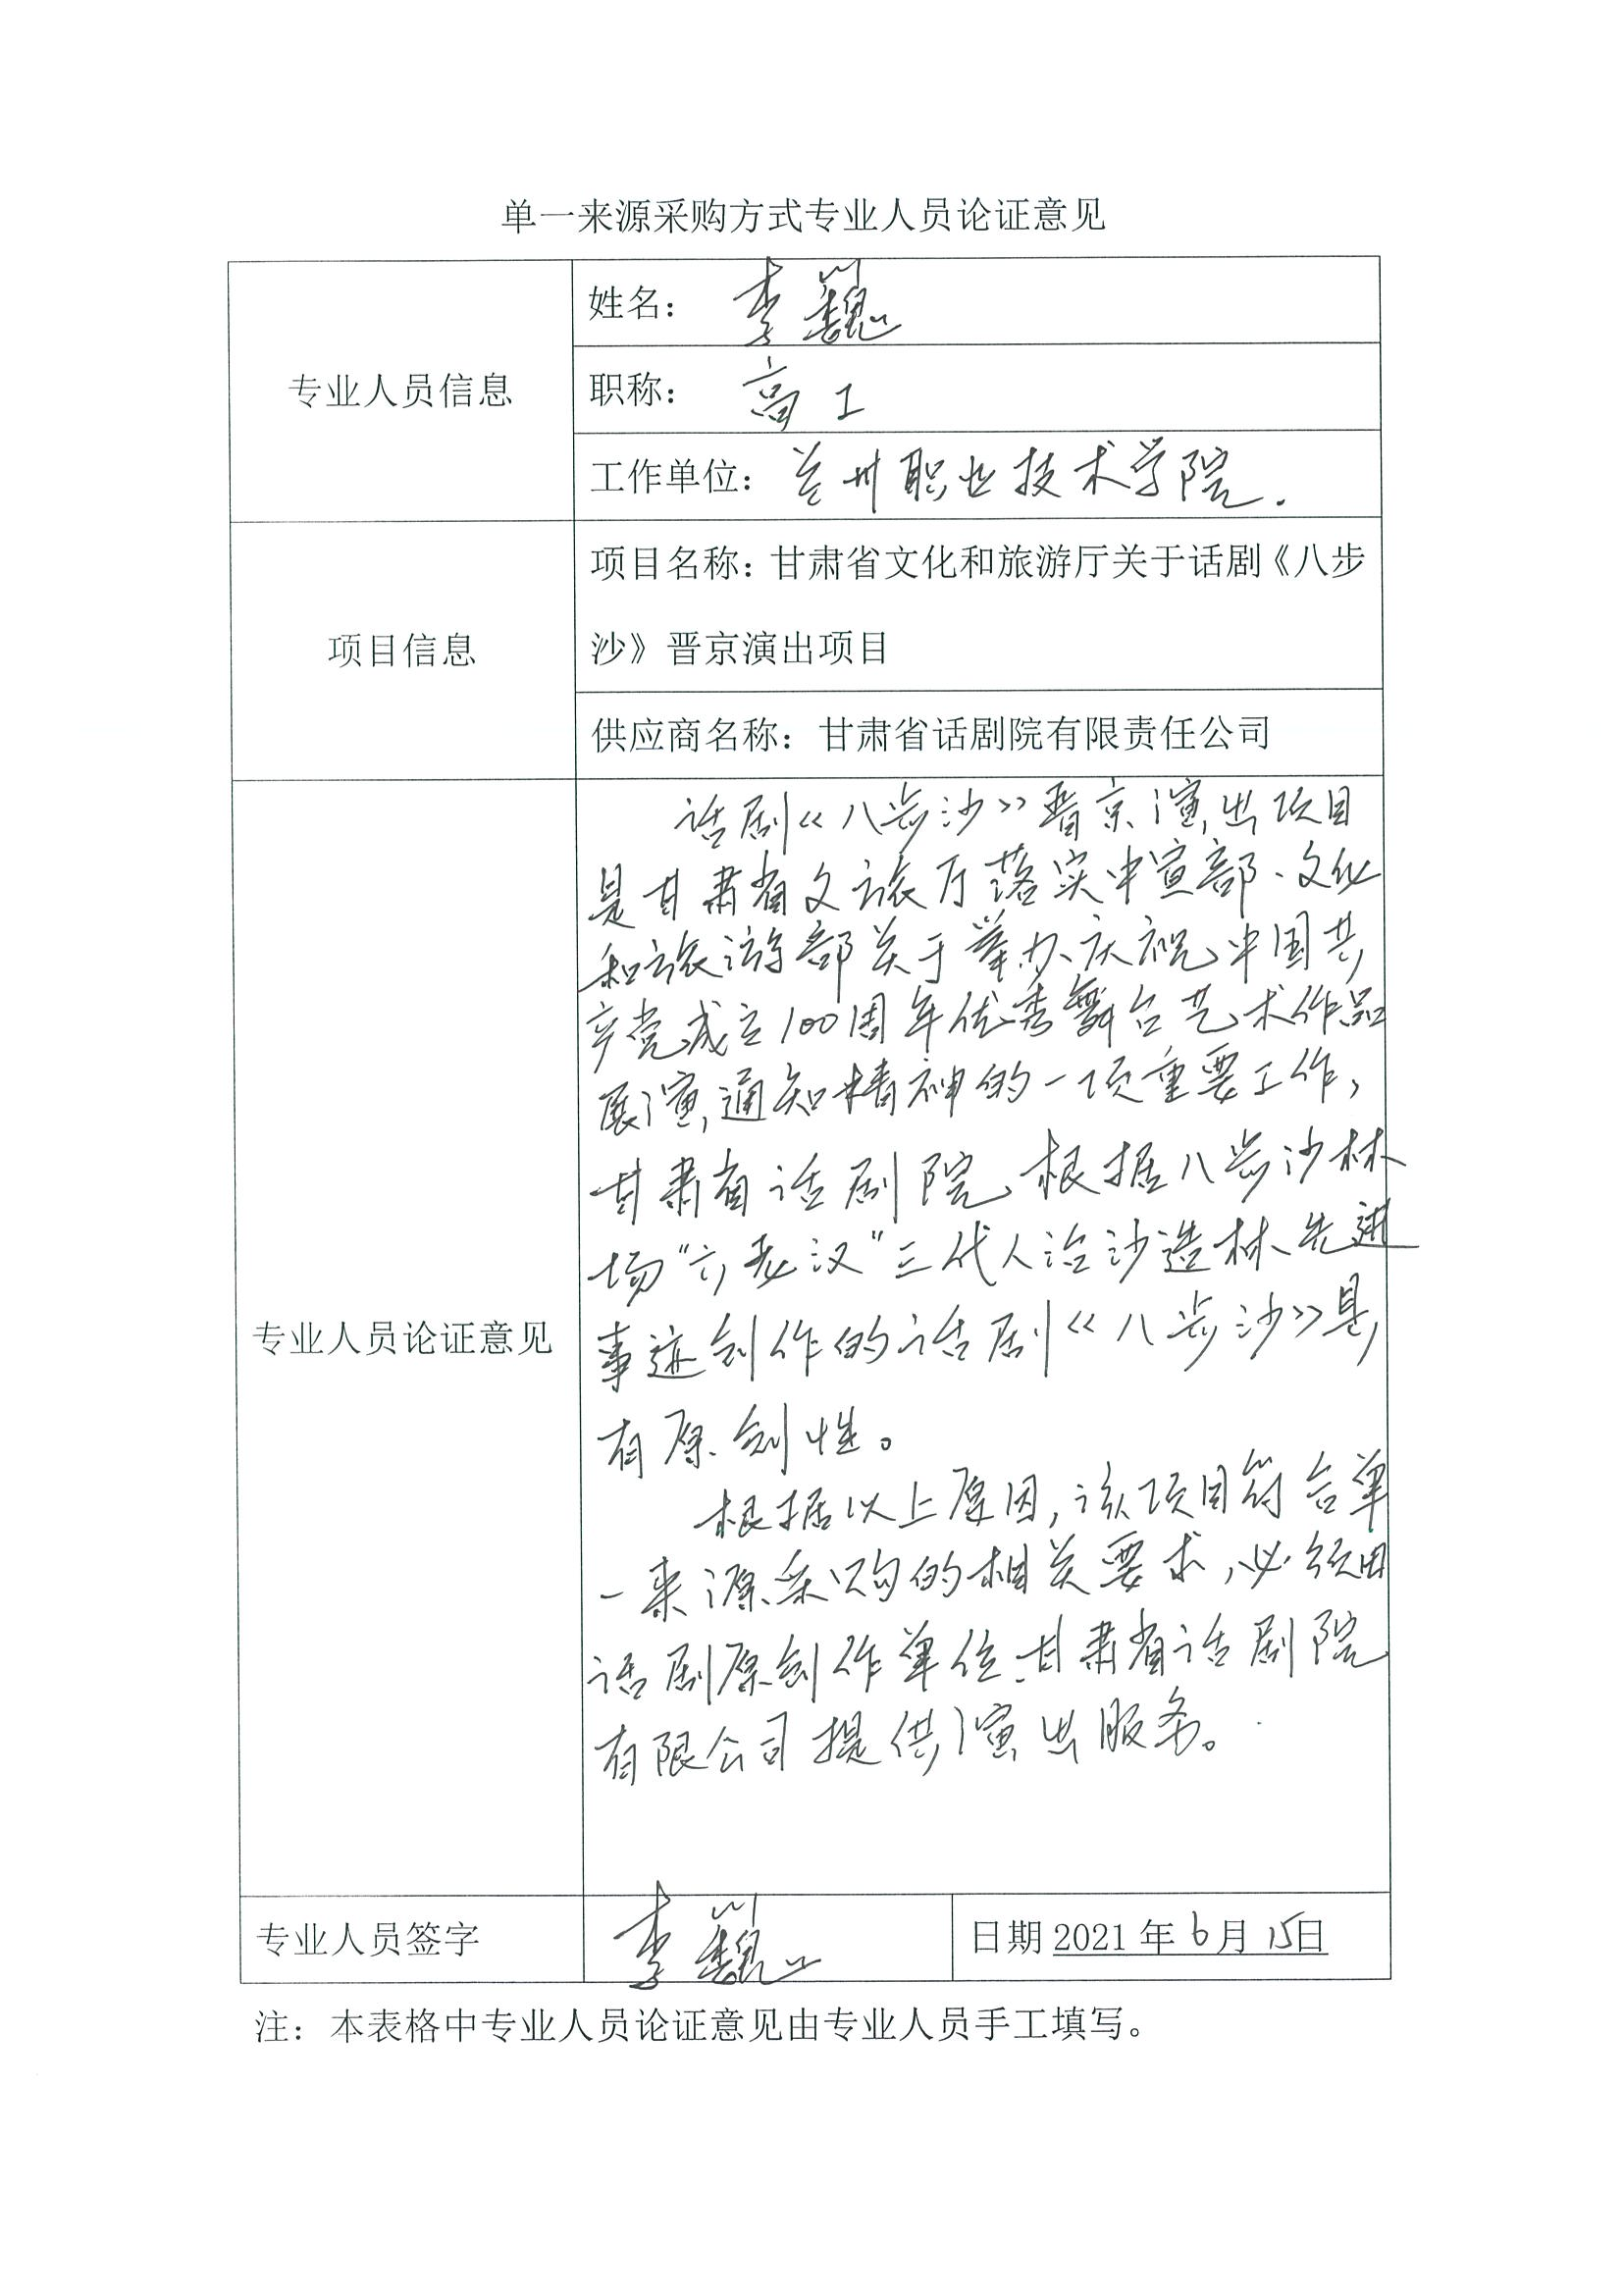 单一来源采购方式专业人员论证意见
专业人员信息
姓名：李巍
职称：高工
工作单位：兰州职业技术学院.
项目信息
项目名称：甘肃省文化和旅游厅关于话剧《八步
沙》晋京演出项目
供应商名称：甘肃省话剧院有限责任公司
专业人员论证意见
话剧《八步沙》晋京演出项目
是甘肃省文旅厅落实中宣部、文化
和旅游部关于举办庆祝中国共
产党成立100周年优秀舞台艺术作品
展演通知精神的一项重要工作，
甘肃省话剧院根据八步沙林
场“六老汉”三代人治沙造林先进
事迹创作的话剧《八步沙》具
有原创性。
根据以上原因，该项目符合单
一来源采购的相关要求，必须由
话剧原创作单位甘肃省话剧院
有限公司提供演出服务。
专业人员签字
李巍
日期 2021 年 6 月 15日
注：本表格中专业人员论证意见由专业人员手工填写。